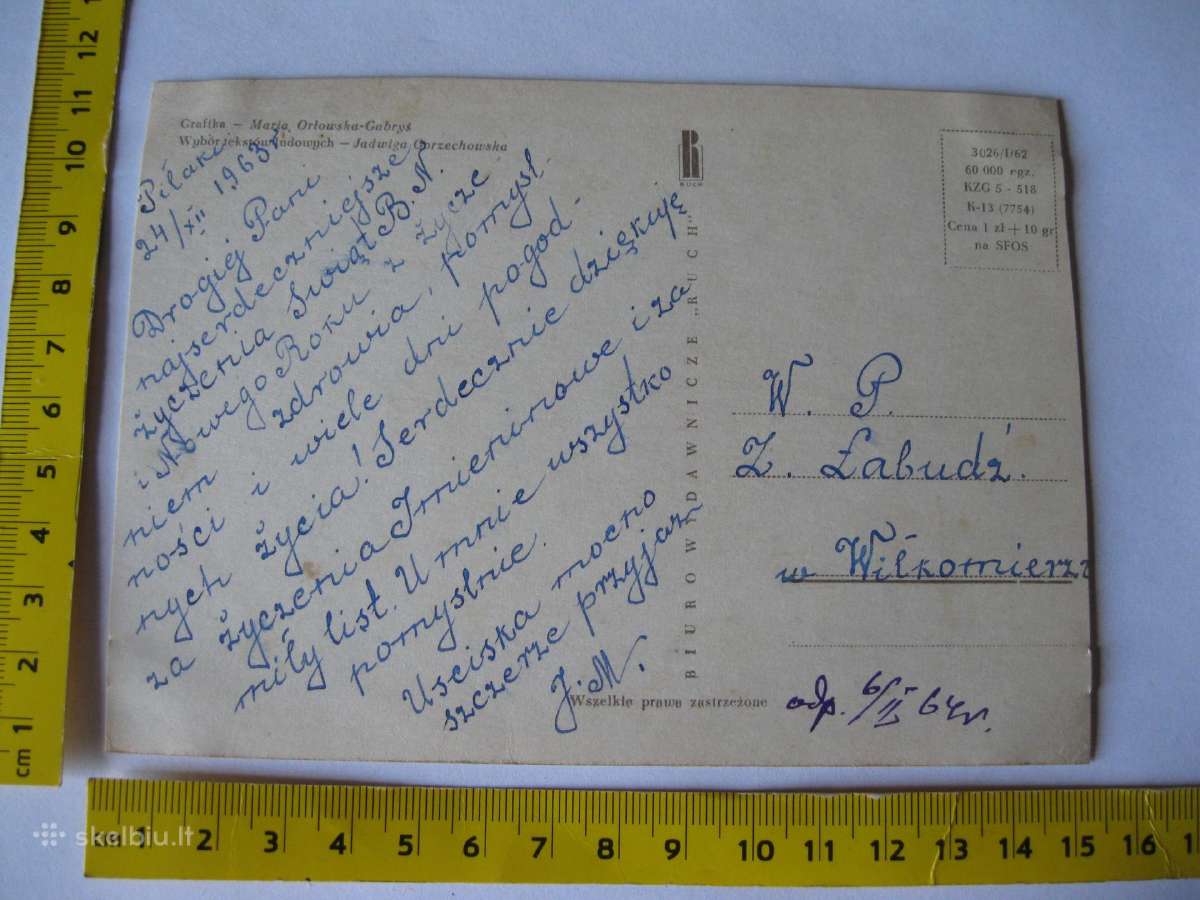 Grafika — Maria Orłowska-Gabryś
Wybór tekstów ludowych — Jadwiga Gorzechowska
24/XII 1963 r.
Drogiej Pani
najserdeczniejsze
życzenia Świąt B. N.
i Nowego Roku z życze
niem zdrowia, pomyśl
ności i wiele dni pogod-
nych życia! Serdecznie dziękuję
za życzenia Imieninowe i za
miły list. U mnie wszystko
pomyślnie.
Usciska mocno
szczerze przyjazn
J. M.
RUCH
BIURO WYDAWNICZE „RUCH”
3026/I/62
60 000 egz.
KZG 5 - 518
K-13 (7754)
Cena 1 zł + 10 gr
na SFOS
W. P.
Z. Łabudź.
w Wiłkomierzu
Wszelkie prawa zastrzeżone
odp. 6/II 64 r.
cm 1 2 3 4 5 6 7 8 9 10 11 12
1 2 3 4 5 6 7 8 9 10 11 12 13 14 15 16
skelbiu.lt